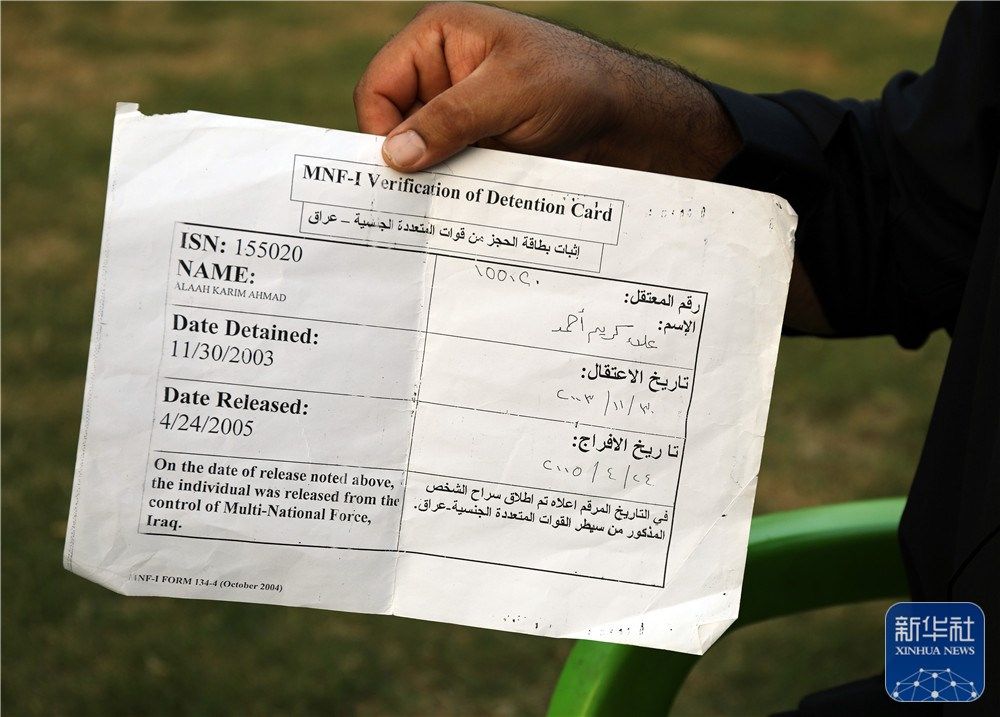 MNF-I Verification of Detention Card
إثبات بطاقة الحجز من قوات المتعددة الجنسية – عراق
ISN: 155020
NAME:
ALAAH KARIM AHMAD
Date Detained:
11/30/2003
Date Released:
4/24/2005
On the date of release noted above,
the individual was released from the
control of Multi-National Force,
Iraq.
رقم المعتقل:
١٥٥٠٢٠
الإسم:
علاء كريم أحمد
تاريخ الاعتقال:
٢٠٠٣/١١/٣٠
تاريخ الافراج:
٢٠٠٥/٤/٢٤
في التاريخ المرقم اعلاه تم اطلاق سراح الشخص
المذكور من سيطر القوات المتعددة الجنسية-عراق.
MNF-I FORM 134-4 (October 2004)
新华社
XINHUA NEWS